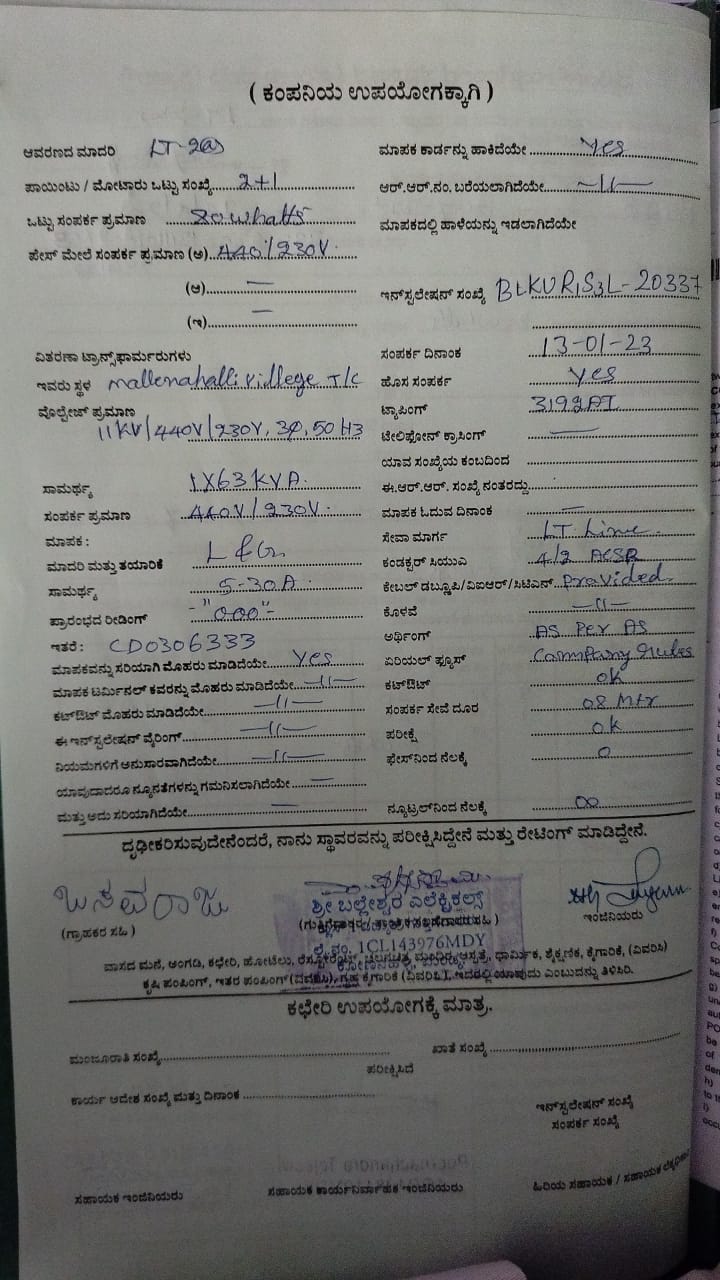 ( ಕಂಪನಿಯ ಉಪಯೋಗಕ್ಕಾಗಿ )
ಆವರಣದ ಮಾದರಿ LT-2(a)
ಮಾಪಕ ಕಾರ್ಡನ್ನು ಹಾಕಿದೆಯೇ Yes
ಪಾಯಿಂಟು / ಮೋಟಾರು ಒಟ್ಟು ಸಂಖ್ಯೆ 2+1
ಆರ್.ಆರ್.ನಂ. ಬರೆಯಲಾಗಿದೆಯೇ —11—
ಒಟ್ಟು ಸಂಪರ್ಕ ಪ್ರಮಾಣ 80 whatts
ಮಾಪಕದಲ್ಲಿ ಹಾಳೆಯನ್ನು ಇಡಲಾಗಿದೆಯೇ
ಫೇಸ್ ಮೇಲೆ ಸಂಪರ್ಕ ಪ್ರಮಾಣ (ಅ) 440/230V.
(ಆ) —
ಇನ್‌ಸ್ಟಲೇಷನ್ ಸಂಖ್ಯೆ BLKUR1S3L-20337
(ಇ) —
ವಿತರಣಾ ಟ್ರಾನ್ಸ್‌ಫಾರ್ಮರುಗಳು
ಸಂಪರ್ಕ ದಿನಾಂಕ 13-01-23
ಇವರು ಸ್ಥಳ Mallenahalli villege T/C
ಹೊಸ ಸಂಪರ್ಕ Yes
ವೊಲ್ಟೇಜ್ ಪ್ರಮಾಣ
ಟ್ಯಾಪಿಂಗ್
11KV/440V/230V, 3φ, 50 HZ
ಟೆಲಿಫೋನ್ ಕ್ರಾಸಿಂಗ್ —
ಯಾವ ಸಂಖ್ಯೆಯ ಕಂಬದಿಂದ
ಸಾಮರ್ಥ್ಯ 1X63 KVA.
ಈ.ಆರ್.ಆರ್. ಸಂಖ್ಯೆ ನಂತರದ್ದು
ಸಂಪರ್ಕ ಪ್ರಮಾಣ 440V/230V.
ಮಾಪಕ ಓದುವ ದಿನಾಂಕ —
ಮಾಪಕ :
ಸೇವಾ ಮಾರ್ಗ LT Line.
ಮಾದರಿ ಮತ್ತು ತಯಾರಿಕೆ L & G
ಕಂಡಕ್ಟರ್ ಸಿಯುಎ 4/2 ACSR
ಸಾಮರ್ಥ್ಯ 5-30A.
ಕೇಬಲ್ ಡಬ್ಲೂಪಿ/ವಿಐಆರ್/ಸಿಟಿಎಸ್ Provided.
ಪ್ರಾರಂಭದ ರೀಡಿಂಗ್ -"000"-
ಕೊಳವೆ —11—
ಇತರೆ : CD0306333
ಅರ್ಥಿಂಗ್ AS Per AS
ಮಾಪಕವನ್ನು ಸರಿಯಾಗಿ ಮೊಹರು ಮಾಡಿದೆಯೇ Yes
ಏರಿಯಲ್ ಫ್ಯೂಸ್ Commpany rules
ಮಾಪಕ ಟರ್ಮಿನಲ್ ಕವರನ್ನು ಮೊಹರು ಮಾಡಿದೆಯೇ —11—
ಕಟ್‌ಔಟ್ ok
ಕಟ್‌ಔಟ್ ಮೊಹರು ಮಾಡಿದೆಯೇ —11—
ಸಂಪರ್ಕ ಸೇವೆ ದೂರ 08 Mtr
ಈ ಇನ್‌ಸ್ಟಲೇಷನ್ ವೈರಿಂಗ್ —11—
ಪರೀಕ್ಷೆ ok
ನಿಯಮಗಳಿಗೆ ಅನುಸಾರವಾಗಿದೆಯೇ —11—
ಫೇಸ್‌ನಿಂದ ನೆಲಕ್ಕೆ 0
ಯಾವುದಾದರೂ ನ್ಯೂನತೆಗಳನ್ನು ಗಮನಿಸಲಾಗಿದೆಯೇ —
ಮತ್ತು ಅದು ಸರಿಯಾಗಿದೆಯೇ —
ನ್ಯೂಟ್ರಲ್‌ನಿಂದ ನೆಲಕ್ಕೆ 00
ದೃಢೀಕರಿಸುವುದೇನೆಂದರೆ, ನಾನು ಸ್ಥಾವರವನ್ನು ಪರೀಕ್ಷಿಸಿದ್ದೇನೆ ಮತ್ತು ರೇಟಿಂಗ್ ಮಾಡಿದ್ದೇನೆ.
ಬಸವರಾಜು
ಶ್ರೀ ಬಲ್ಲೇಶ್ವರ ಎಲೆಕ್ಟ್ರಿಕಲ್ಸ್
(ಗ್ರಾಹಕರ ಸಹಿ)
ಇಂಜಿನಿಯರು
ಲೈ.ನಂ. 1CL143976MDY
ವಾಸದ ಮನೆ, ಅಂಗಡಿ, ಕಛೇರಿ, ಹೋಟೆಲು, ರೆಸ್ಟೋರೆಂಟ್, ಚಲನಚಿತ್ರ ಮಂದಿರ, ಆಸ್ಪತ್ರೆ, ಧಾರ್ಮಿಕ, ಶೈಕ್ಷಣಿಕ, ಕೈಗಾರಿಕೆ, (ವಿವರಿಸಿ)
ಕೃಷಿ ಪಂಪಿಂಗ್, ಇತರ ಪಂಪಿಂಗ್ (ವಿವರಿಸಿ), ಗೃಹ ಕೈಗಾರಿಕೆ (ವಿವರಿಸಿ), ಇದರಲ್ಲಿ ಯಾವುದು ಎಂಬುದನ್ನು ತಿಳಿಸಿರಿ.
ಕಛೇರಿ ಉಪಯೋಗಕ್ಕೆ ಮಾತ್ರ.
ಮಂಜೂರಾತಿ ಸಂಖ್ಯೆ
ಖಾತೆ ಸಂಖ್ಯೆ
ಪರೀಕ್ಷಿಸಿದೆ
ಕಾರ್ಯ ಆದೇಶ ಸಂಖ್ಯೆ ಮತ್ತು ದಿನಾಂಕ
ಇನ್‌ಸ್ಟಲೇಷನ್ ಸಂಖ್ಯೆ
ಸಂಪರ್ಕ ಸಂಖ್ಯೆ
ಸಹಾಯಕ ಇಂಜಿನಿಯರು
ಸಹಾಯಕ ಕಾರ್ಯನಿರ್ವಾಹಕ ಇಂಜಿನಿಯರು
ಹಿರಿಯ ಸಹಾಯಕ / ಸಹಾಯಕ